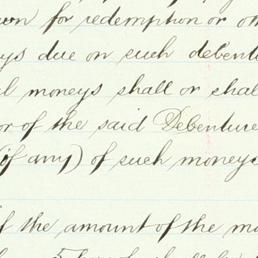 wn for redemption or oth
ys due on such debentu
l moneys shall or shal
or of the said Debenture
(if any) of such moneys
f the amount of the mo